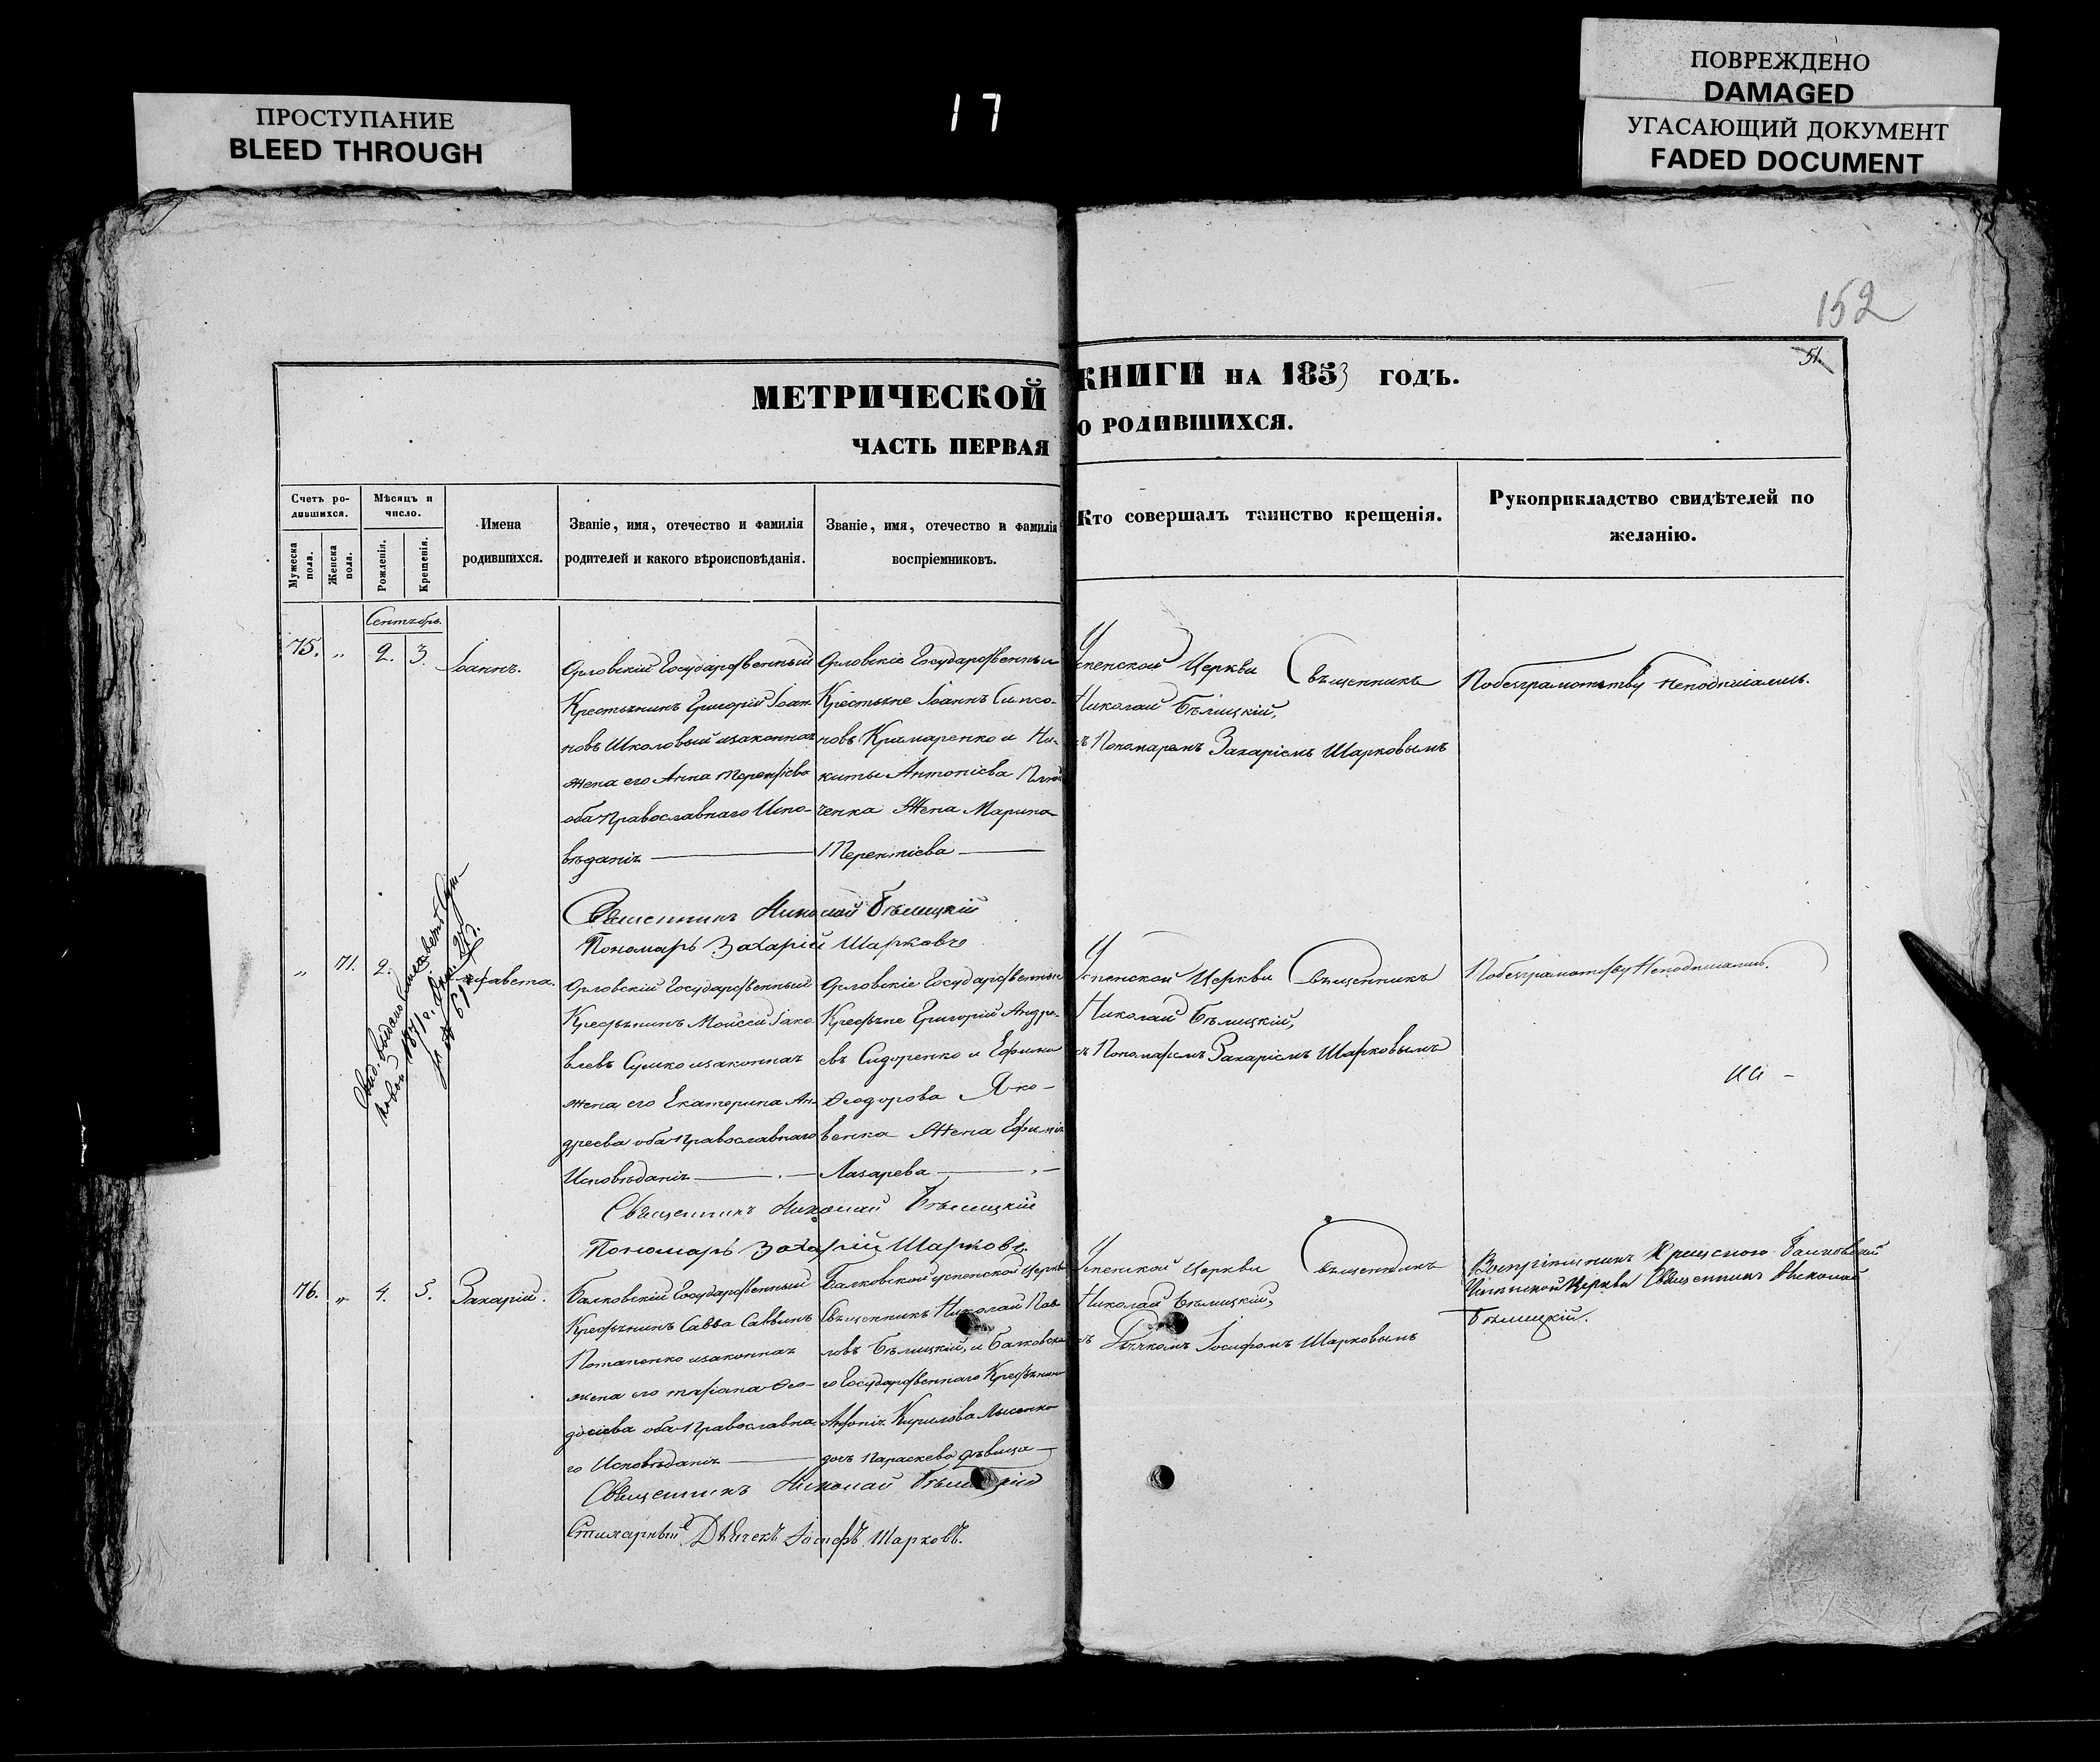 ПРОСТУПАНИЕ
BLEED THROUGH
17
ПОВРЕЖДЕНО
DAMAGED
УГАСАЮЩИЙ ДОКУМЕНТ
FADED DOCUMENT
152
51.
МЕТРИЧЕСКОЙ КНИГИ НА 1853 ГОДЪ.
ЧАСТЬ ПЕРВАЯ О РОДИВШИХСЯ.
Счетъ ро-
дившихся.
Мужеска пола.
Женска пола.
Мѣсяцъ и
число.
Рожденія.
Крещенія.
Имена
родившихся.
Званіе, имя, отечество и фамилія
родителей и какого вѣроисповѣданія.
Званіе, имя, отечество и фамилія
воспріемниковъ.
Кто совершалъ таинство крещенія.
Рукоприкладство свидѣтелей по
желанію.
Сентябрь.
75. „ 2. 3. Іоаннъ.
Орловскій Государственный
Крестьянинъ Григорій Іоан-
новъ Школовый и законная
жена его Анна Терентіева
оба Православнаго Испо-
вѣданія
Орловскіе Государственные
Крестьяне Іоаннъ
новъ Крамаренко и Ни-
киты Антоніева
ченка Жена Марина
Терентіева
Успенской Церкви Священникъ
Николай Бѣлицкій,
съ Пономаремъ Захаріемъ Шарковымъ
По безграмотству неподписались.
Священникъ Николай Бѣлицкій
Пономарь Захарій Шарковъ
„ 71. 2.
1871 г.
№ 61
Орловскій Государственный
Крестьянинъ Мойсей Іако-
влевъ Сушко и законная
жена его Екатерина Ан-
дреева оба Православнаго
Исповѣданія
Орловскіе Государственные
Крестьяне Григорій Андре-
евъ Сидоренко и Ефима
Ѳеодорова Яко-
венка Жена Ефимія
Лазарева
Успенской Церкви Священникъ
Николай Бѣлицкій,
съ Пономаремъ Захаріемъ Шарковымъ
По безграмотству Неподписались.
Священникъ Николай Бѣлицкій
Пономарь Захарій Шарковъ.
76. „ 4. 5. Захарій.
Балковскій Государственный
Крестьянинъ Савва Саввинъ
Потапенко и законная
жена его Татіана Ѳео-
досіева оба Православна-
го Исповѣданія
Балковской Успенской Церкви
Священникъ Николай Пав-
ловъ Бѣлицкій, и Балковска-
го Государственнаго Крестьянина
Антонія Кирилова Лысенко
дочь Параскева дѣвица
Успенской Церкви Священникъ
Николай Бѣлицкій,
съ Дьячкомъ Іосифомъ Шарковымъ
Воспріемникъ Балковской
Успенской Церкви Священникъ Николай
Бѣлицкій.
Священникъ Николай Бѣлицкій
Стихарный Дьячекъ Іосифъ Шарковъ.